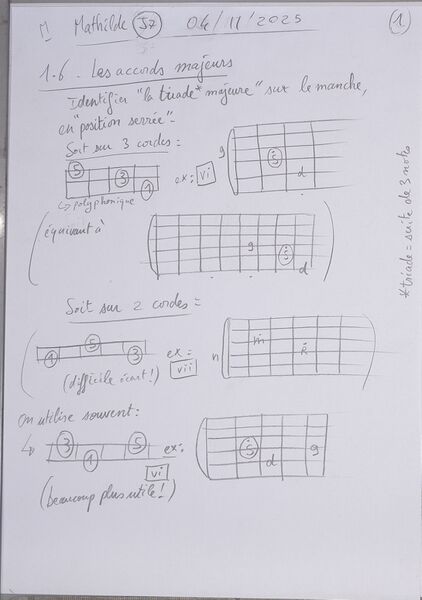 Mathilde J7 04/11/2025 1
1.6. Les accords majeurs
Identifier "la triade* majeure" sur le manche,
en "position serrée".
Soit sur 3 cordes :
5
3
1
ex: vi
g
d
↳ polyphonique
équivaut à
g
d
* triade = suite de 3 notes
Soit sur 2 cordes :
5
1 3
(difficile écart !)
ex = vii
n m R
On utilise souvent :
↳ 3 5
1
ex: vi
d g
(beaucoup plus utile !)